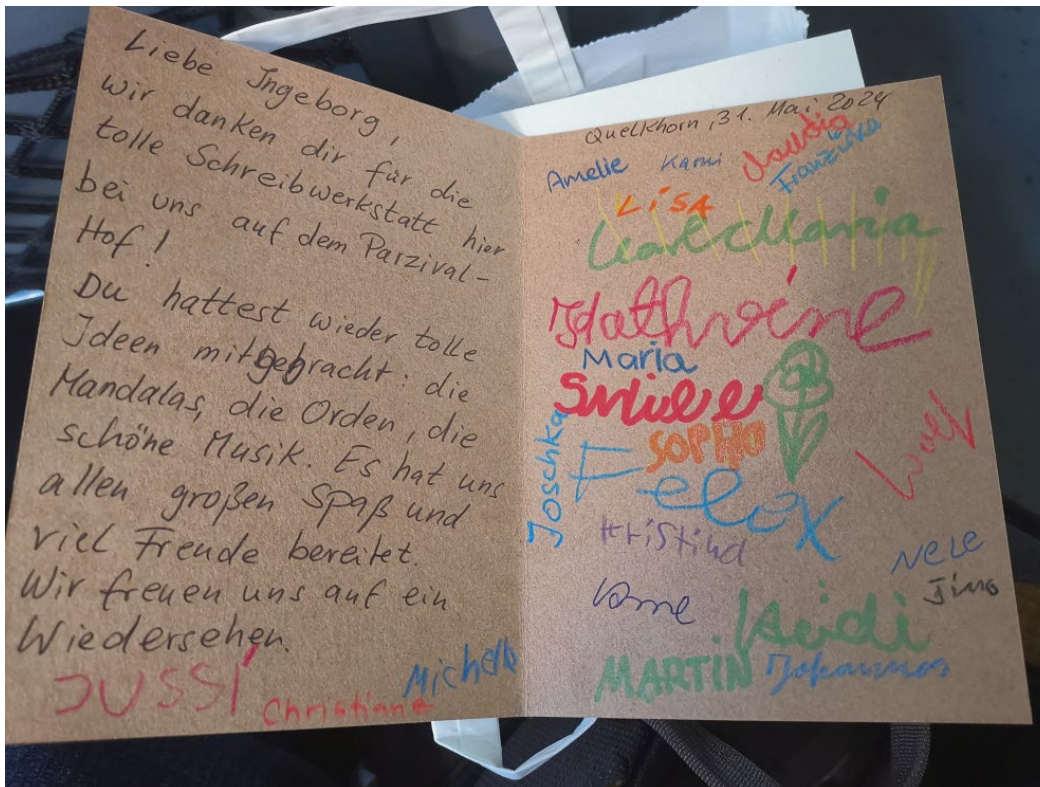 Liebe Ingeborg,
wir danken dir für die
tolle Schreibwerkstatt hier
bei uns auf dem Parzival-
Hof!
Du hattest wieder tolle
Ideen mitgebracht: die
Mandalas, die Orden, die
schöne Musik. Es hat uns
allen großen Spaß und
viel Freude bereitet.
Wir freuen uns auf ein
Wiedersehen.
JUSSI
Christiane
Michelle
Quelkhorn, 31. Mai 2024
Amelie
Claudia
Franziska
LISA
Maria
Kathrine
Maria
SOPHIA
Joschka
Felix
Kristina
NeLe
Heidi
MARTIN
Johannes